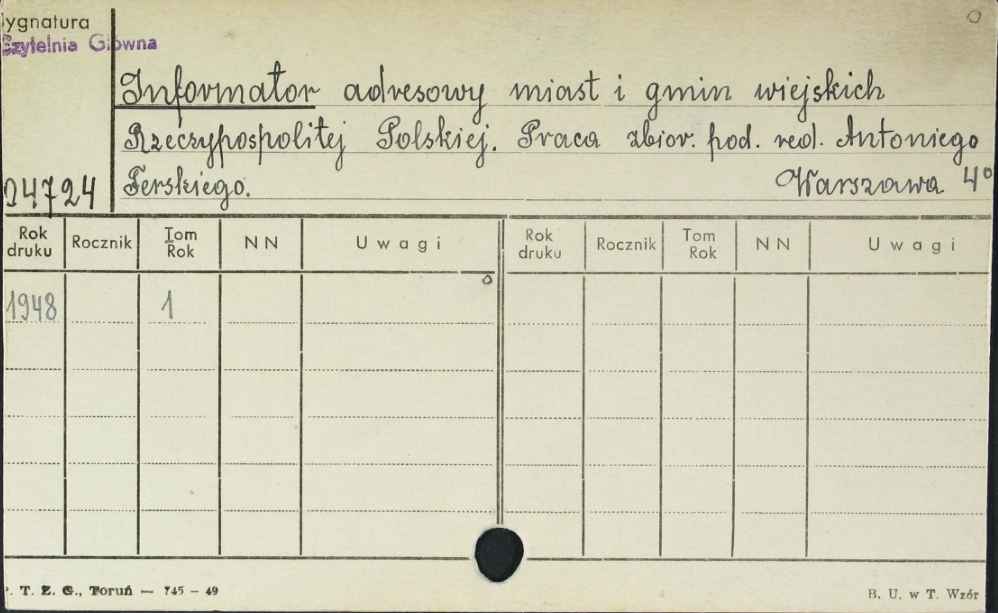 ygnatura
Czytelnia Główna
Informator adresowy miast i gmin wiejskich
Rzeczypospolitej Polskiej. Praca zbior. pod. red. Antoniego
Ferskiego. Warszawa 4°
04724
Rok druku Rocznik Tom Rok NN Uwagi Rok druku Rocznik Tom Rok NN Uwagi
1948 1
. T. Z. G., Toruń — 745 – 49
B. U. w T. Wzór